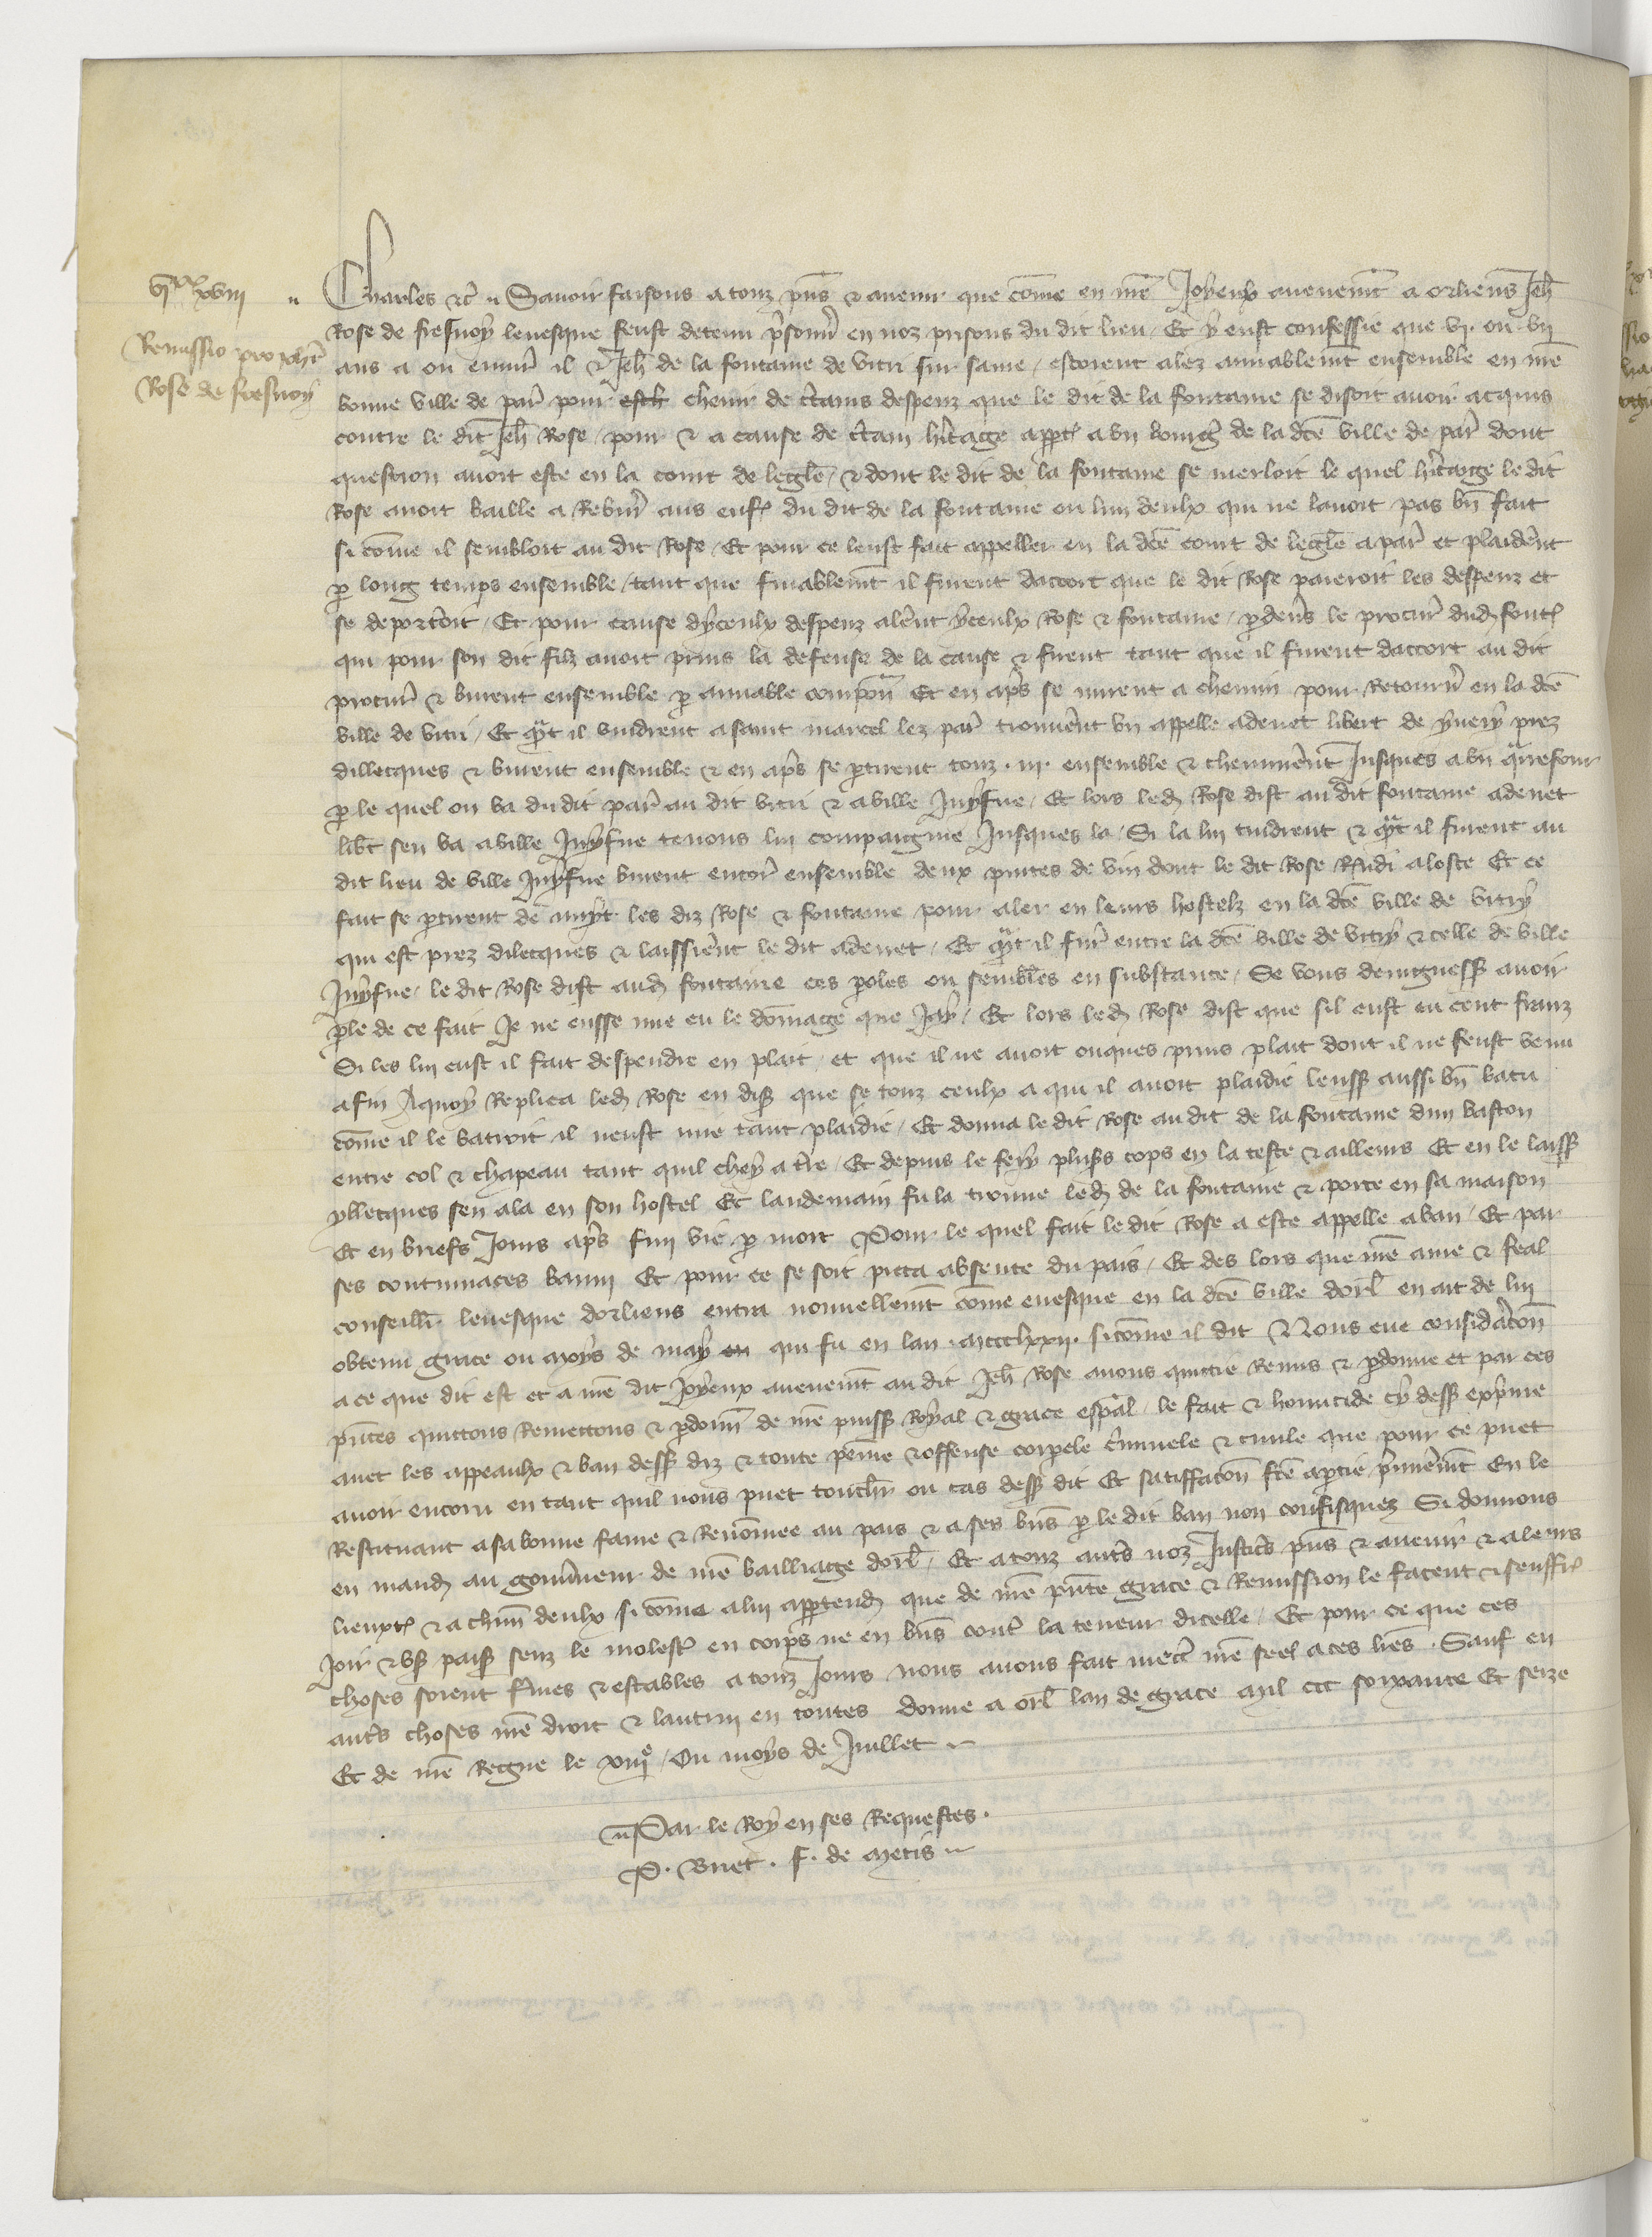 vi xx xviii
Remissio pro Joh̃e
Rose de fresnoy
Charles etc̃ Sauoir faisons a touz p̃ns et auenir que cõme en nr̃e Joyeux aueneemt̃ a orliens Jeh̃
Rose de fresnoy leuesque feust detenu p̃sonñ en noz prisons du dit lieu Et y eust confessie que vi ou vii
ans a ou enuir̃ il et Jeh̃ de la fontaine de vitri sur saine estoient alez amiablemt̃ ensemble en nr̃e
bonne ville de par̃ pour cheuir de c̃tains despenz que le dit de la fontaine se disoit auoir acquis
contre le dit Jeh̃ Rose pour et a cause de c̃tain h̃itage app̃t a vn bourg̃ de la dc̃e ville de par̃ dont
question auoit este en la court de leglĩe et dont le dit de la fontaine se mesloit le quel h̃itage le dit
Rose auoit baille a aus enf̃ du dit de la fontaine ou lun deulx qui ne lauoit pas bñ fait
si cõme il sembloit au dit Rose Et pour ce leust fait appeller en la dc̃e court de leglĩe a par̃ et plaider̃nt
p long temps ensemble tant que finablemt̃ il furent daccort que le dit Rose paieroit les despenz et
se deporteroit Et pour cause dyceulx despenz aler̃nt yceulx Rose et fontaine p deuers le procur̃ dud font̃
qui pour son dit filz auoit prins la defense de la cause et firent tant que il furent daccort au dit
procur̃ et burent ensemble p amiable compoñ Et en apr̃s se mirent a chemin pour Retourñ en la dc̃e
ville de vitri Et q̃nt il vindrent a saint marcel lez par̃ trouuer̃nt vn appelle adenet libert de yuery prez
dillecques et burent ensemble et en apr̃s se ptirent touz iii ensemble et cheminer̃nt Jusques a vn quarefour
p le quel on va du dit par̃ au dit vitri et a ville Juyfue Et lors led Rose dist au dit fontaine adenet
lib̃t sen va a ville Juyfue tenons lui compaignie Jusques la Si la lui tindrent et q̃nt il furent au
dit lieu de ville Juyfue burent encor̃ ensemble deux pintes de vin dont le dit Rose a loste Et ce
fait se ptirent de nuyt les diz Rose et fontaine pour aler en leurs hostelz en la dc̃e ville de vitry
qui est prez dilecques et laissier̃nt le dit adenet Et q̃nt il fur̃ entre la dc̃e ville de vitry et celle de ville
Juyfue le dit Rose dist aud fontaine ces poles ou sembl̃es en substance Se vous deingness auoir
ple de ce fait Je ne eusse mie eu le dõmage que Jay Et lors led Rose dist que sil eust eu cent franz
Si les lui eust il fait despendre en plait et que il ne auoit onques prins plait dont il ne feust venu
a fin Aquoy Replica led Rose en dis̃ que se touz ceulx a qui il auoit plaidie leuss̃ aussi bñ batu
cõme il le batroit il neust mie tant plaidie Et donna le dit Rose au dit de la fontaine dun baston
entre col et chapeau tant quil chey a tr̃e Et depuis le fery plus̃s cops en la teste et ailleurs Et en le laiss̃
yllecques sen ala en son hostel Et landemain fu la trouue led de la fontaine et porte en sa maison
Et en briefs Jours apr̃s fini vie p mort Pour le quel fait le dit Rose a este appelle a ban Et par
ses contumaces banni Et pour ce se soit pieca absente du pais Et des lors que nr̃e ame et feal
conseill̃r leuesque dorliens entra nouuellemt̃ cõme euesque en la dc̃e ville dorl̃ en ait de lui
obtenu grace ou moys de may qui fu en lan mccclxxii si cõme il dit Nous eue considãcõn
a ce que dit est et a nr̃e dit Joyeux auenemt̃ au dit Jeh̃ Rose auons quictie Remis et pdonne et par ces
p̃ntes quictons Remectons et pdonñ de nr̃e puiss̃ Royal et grace esp̃al le fait et homicide cy dess̃ exp̃me
auec les appeaulx et ban dess̃ diz et toute peine et offense corpele c̃minele et ciuile que pour ce puet
auoir encoru en tant quil nous puet touch̃r ou cas dess̃ dit Et satiffacõn fc̃e a ptie p̃mier̃mt̃ En le
Restituant a sa bonne fame et Renõmee au pais et a ses bñs p le dit ban non confisquez Si donnons
en mand au gouũneur de nr̃e bailliage dorl̃ Et a touz autr̃s noz Justic̃s p̃ns et auenir̃ et a leurs
lieuxt̃ et a chũn deulx si cõme a lui apptend que de nr̃e p̃nte grace et Remission le facent et seuffr̃
Joir et vs̃ paisi senz le molest̃ en corps ne en bñs cont̃ la teneur dicelle Et pour ce que ces
choses soient fmes et estables a touz Jours nous auons fait mect̃ nr̃e seel a ces lr̃es Sauf en
autr̃s choses nr̃e droit et lautrui en toutes donne a orl̃ lan de grace mil ccc soixante Et seize
Et de nr̃e Regne le xiiie Ou moys de Juillet
Par le Roy en ses Requestes
P. Buet. f. de metis